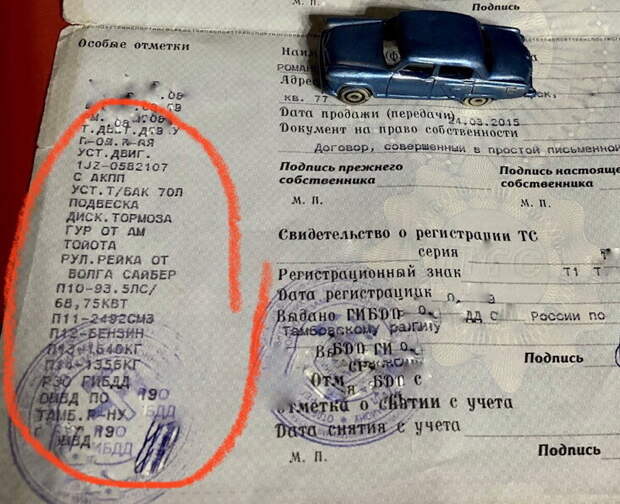 Подпись
М. П.
Особые отметки
УСТ.ДВИГ.
1JZ-0582107
С АКПП
УСТ.Т/БАК 70Л
ПОДВЕСКА
ДИСК.ТОРМОЗА
ГУР ОТ АМ
ТОЙОТА
РУЛ.РЕЙКА ОТ
ВОЛГА САЙБЕР
П10-93.5ЛС/
68,75КВТ
П11-2492СМ3
П12-БЕНЗИН
П13-1640КГ
П14-1356КГ
РЭО ГИБДД
ОМВД ПО
ТАМБ.Р-НУ
кв. 77
Дата продажи (передачи)
24.03.2015
Документ на право собственности
Договор, совершенный в простой письменной
Подпись прежнего
собственника
Подпись настояще
собственника
М. П.
М. П.
Свидетельство о регистрации ТС
серия
Регистрационный знак Т1 Т
Дата регистрации
Выдано ГИБДД
России по
Тамбовскому
Подпись
отметка о снятии с учета
Дата снятия с учета
М. П.
Подпись